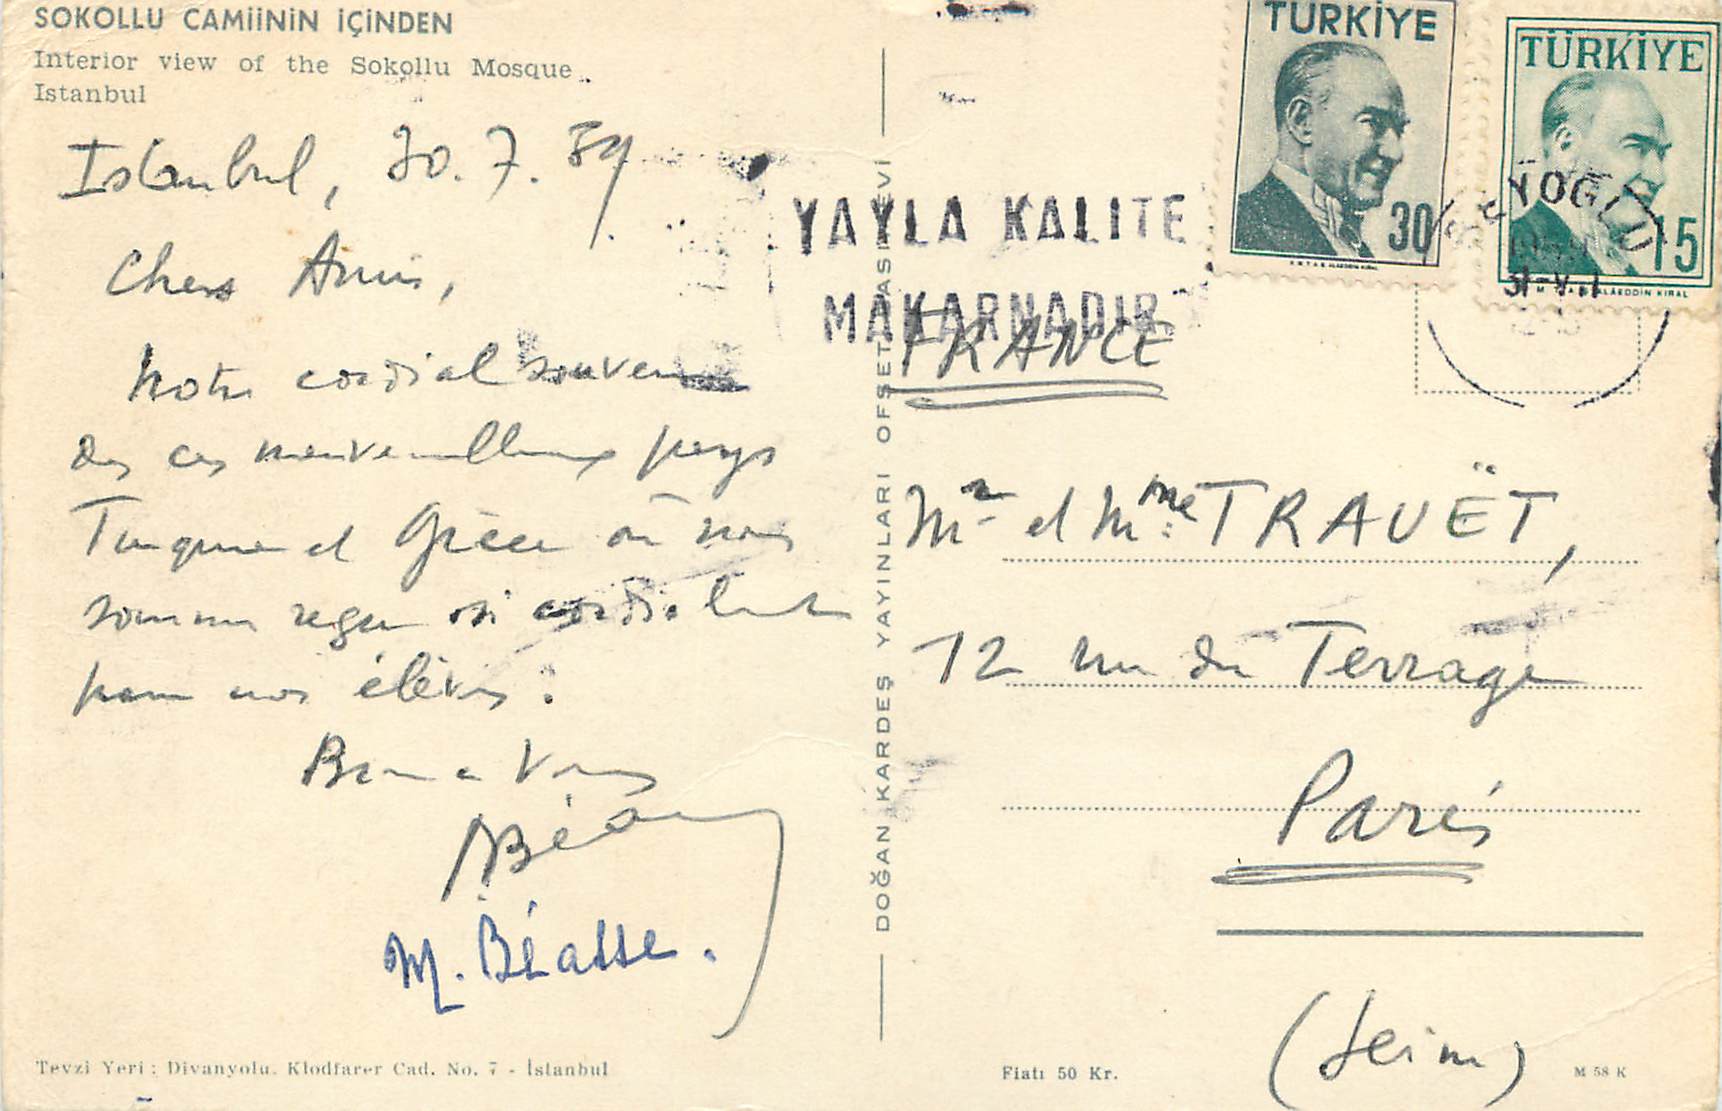 SOKOLLU CAMİİNİN İÇİNDEN
Interior view of the Sokollu Mosque
Istanbul
Istanbul, 30.7.59
Chers Amis,
Notre cordial souvenir
de ces merveilleux pays
Turquie et Grèce où nous
sommes reçus si cordialement
par nos élèves.
Bien à vous
M. Béalle.
Tevzi Yeri: Divanyolu. Klodfarer Cad. No. 7 - İstanbul
DOĞAN KARDEŞ YAYINLARI OFSET BASIMEVİ
YAYLA KALITE
MAKARNADIR
TÜRKİYE
30
TÜRKİYE
15
BEYOĞLU
FRANCE
Mr et Mme TRAUËT,
12 rue du Terrage
Paris
(Seine)
Fiatı 50 Kr.
M 58 K